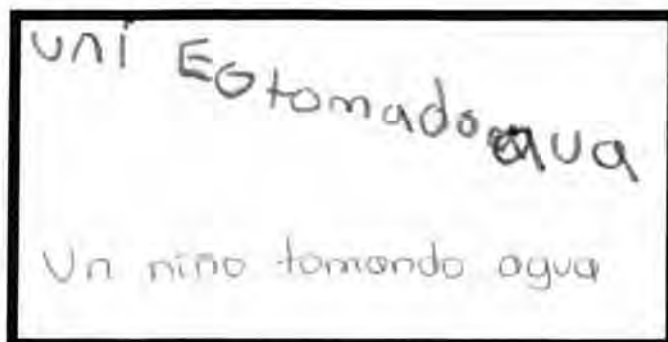 uni EGtomadoaqua
Un niño tomando agua